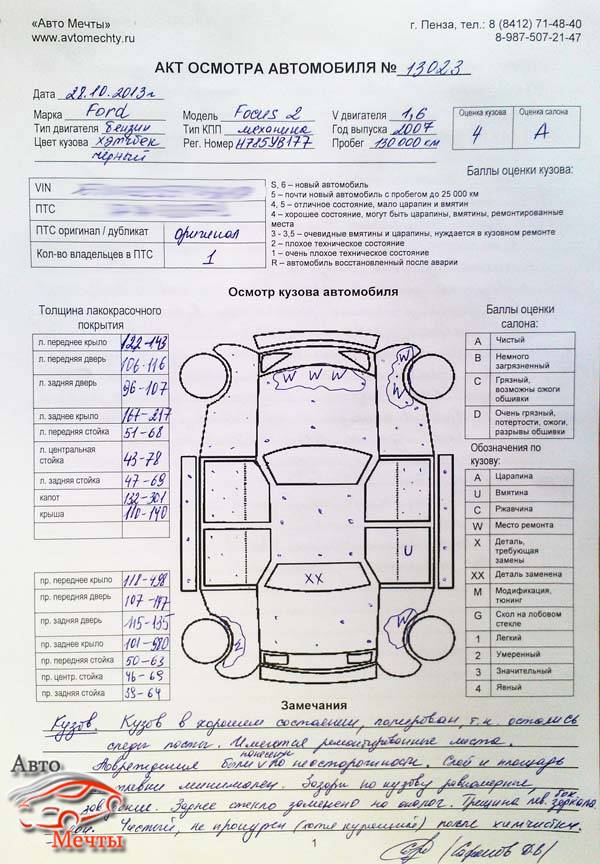 «Авто Мечты»
www.avtomechty.ru
г. Пенза, тел.: 8 (8412) 71-48-40
8-987-507-21-47
АКТ ОСМОТРА АВТОМОБИЛЯ № 13023
Дата 28.10.2013г
Марка Ford Модель Focus 2 V двигателя 1,6
Тип двигателя бензин Тип КПП механика Год выпуска 2007
Цвет кузова хэтчбек Рег. Номер Н785УВ177 Пробег 130000 км
чёрный
Оценка кузова Оценка салона
4 А
VIN
ПТС
ПТС оригинал / дубликат оригинал
Кол-во владельцев в ПТС 1
Баллы оценки кузова:
S, 6 – новый автомобиль
5 – почти новый автомобиль с пробегом до 25 000 км
4, 5 – отличное состояние, мало царапин и вмятин
4 – хорошее состояние, могут быть царапины, вмятины, ремонтированные
места
3 - 3,5 – очевидные вмятины и царапины, нуждается в кузовном ремонте
2 – плохое техническое состояние
1 – очень плохое техническое состояние
R – автомобиль восстановленный после аварии
Осмотр кузова автомобиля
Толщина лакокрасочного
покрытия
л. переднее крыло 122-143
л. передняя дверь 106-116
л. задняя дверь 96-107
л. заднее крыло 167-217
л. передняя стойка 51-68
л. центральная
стойка 43-78
л. задняя стойка 47-69
капот 132-301
крыша 110-140
пр. переднее крыло 118-498
пр. передняя дверь 107-147
пр. задняя дверь 115-135
пр. заднее крыло 101-580
пр. передняя стойка 50-63
пр. центр. стойка 46-69
пр. задняя стойка 39-64
W W W
W W
U
XX
W
2
Баллы оценки
салона:
A Чистый
B Немного
загрязненный
C Грязный,
возможны ожоги
обшивки
D Очень грязный,
потертости, ожоги,
разрывы обшивки
Обозначения по
кузову:
A Царапина
U Вмятина
C Ржавчина
W Место ремонта
X Деталь,
требующая
замены
XX Деталь заменена
M Модификация,
тюнинг
G Скол на лобовом
стекле
1 Легкий
2 Умеренный
3 Значительный
4 Явный
Замечания
Кузов. Кузов в хорошем состоянии, полирован, т.к. остались
следы пасты. Имеются ремонтированные места.
Повреждения были нанесены по неосторожности. Слой и площадь
минимален. Зазоры по кузову равномерные,
Заднее стекло заменено на аналог. Трещина лев. бок. зеркала
Чистый, не прокурен (хотя курящий) после химчистки.
Авто
Мечты
1